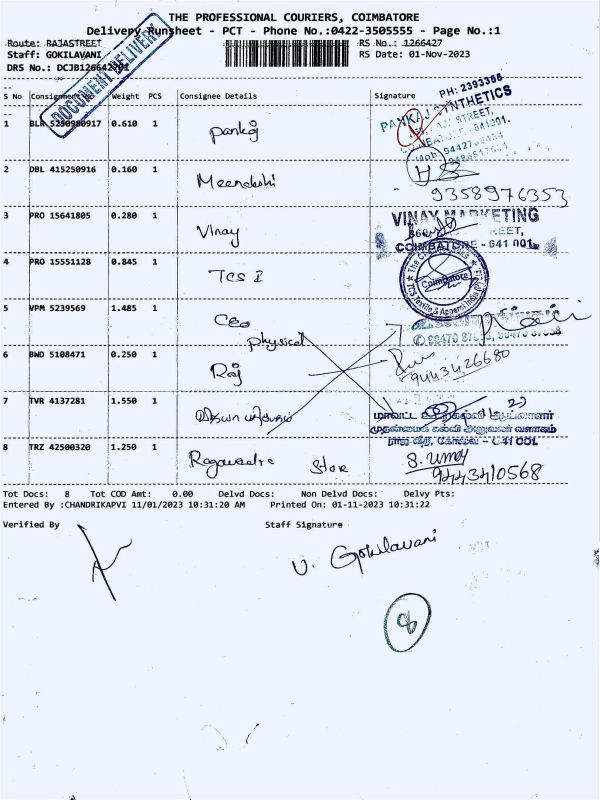 THE PROFESSIONAL COURIERS, COIMBATORE
Delivery Runsheet - PCT - Phone No.:0422-3505555 - Page No.:1
Route: RAJASTREET RS No.: 1266427
Staff: GOKILAVANI RS Date: 01-Nov-2023
DRS No.: DCJB126642701
DOCUMENT DELIVERY
S No Consignment No Weight PCS Consignee Details Signature
PH: 2393386
PANKAJ SYNTHETICS
STREET,
1 BLR 5290980917 0.610 1 Pankaj
2 DBL 415250916 0.160 1 Meenakshi
9358976353
3 PRO 15641805 0.280 1 Vinay
VINAY MARKETING
COIMBATORE - 641 001.
4 PRO 15551128 0.845 1 TCS I
Coimbatore
TCS Textile & Apparel India (P) Ltd
5 VPM 5239569 1.485 1 CEO
Physical
6 BWD 5108471 0.250 1 Raj
9443426680
7 TVR 4137281 1.550 1
மாவட்ட கல்வி ஆய்வாளர்
முதன்மைக் கல்வி அலுவலர் வளாகம்
ராஜ வீதி, கோவை - 641 001.
8 TRZ 42500320 1.250 1 Stor
9443410568
Tot Docs: 8 Tot COD Amt: 0.00 Delvd Docs: Non Delvd Docs: Delvy Pts:
Entered By :CHANDRIKAPVI 11/01/2023 10:31:20 AM Printed On: 01-11-2023 10:31:22
Verified By Staff Signature
V. Gokilavani
8